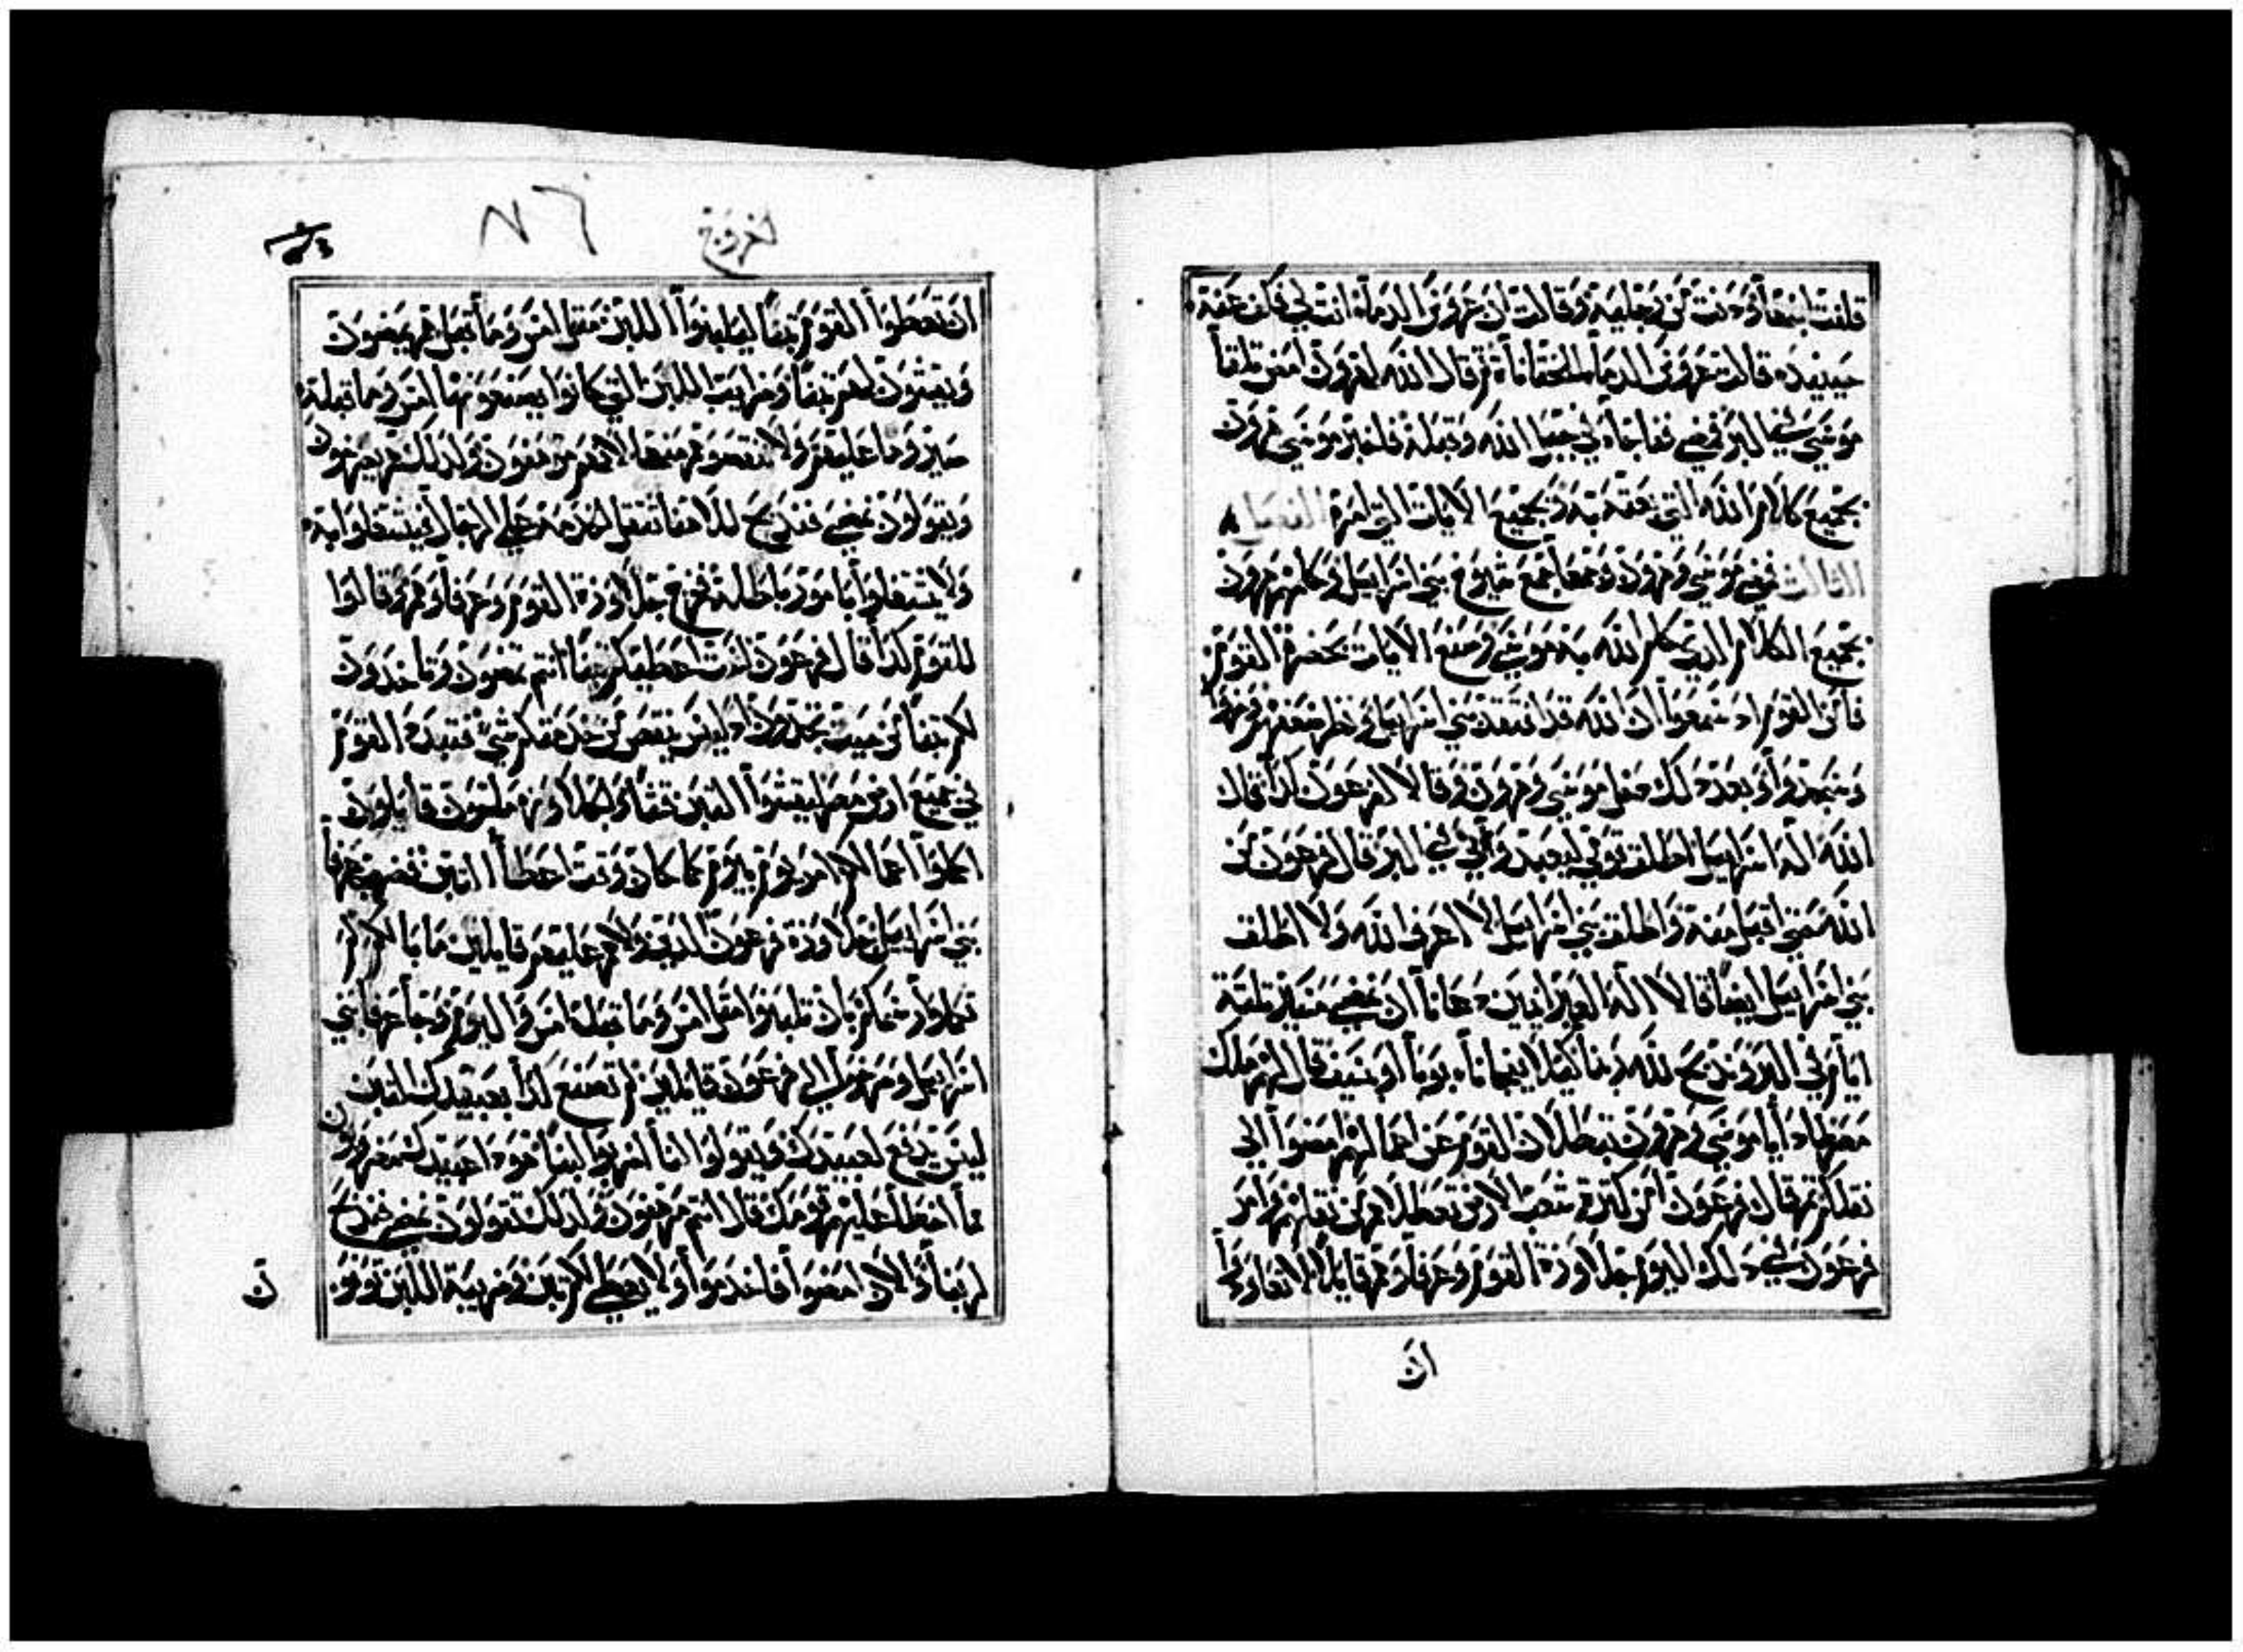 قلفت ابنها ودنت من رجليه وقالت ان عروس الدماء انت لي فكف عنه
حينيذ قالت عروس الدماء للختانة ثم قال الله لهرون امض تلقا
موسى الى البر فمضى ففاجاه في جبل الله وقبله فاخبر موسى هرون
بجميع كلام الله التي بعثه به وبجميع الايات التي امره الفصل
الثالث فمضى موسى وهرون وجمعا جميع شيوخ بني اسراييل وكلمهم هرون
بجميع الكلام الذي كلم الله به موسى وصنع الايات بحضرة القوم
فامن القوم اد سمعوا ان الله قد افتقد بني اسراييل ونظر ضعفهم وخروا
وسجدوا وبعد دلك دخل موسى وهرون وقالا لفرعون كدا قال
الله اله اسراييل اطلق قومي ليعبدوني في البر قال فرعون من
الله حتى اقبل منه واطلق بني اسراييل لا اعرف الله ولا اطلق
بني اسراييل ايضا قالا اله العبرانيين دعانا ان نمضي مسير تلتة
ايام في البر وندبح لله ربنا كيلا يفجانا بوبا او بسيف قال لهم ملك
مصر لمادا يا موسى وهرون تبطلان القوم عن اعمالهم امضوا الى
ثقلكم ثم قال فرعون ان كثرة شعب الارض تعطلاهم من ثقلهم وامر
فرعون في دلك اليوم جلاوزة القوم وعرفاوهم قايلا لا تعاودوا
ان
خروج
٧٦
ان تعطوا القوم تبنا ليلبنوا اللبن مثل امس وما قبل هم يمضون
ويقشون لهم تبنا وضرايب اللبن التي كانوا يصنعونها امس وما قبله
صيروها عليهم ولا تنقصوهم منها لانهم مرفهون ولدلك هم يصرخون
ويقولون نمضي فندبح لالاهنا تثقل الخدمة على الرجال فيشتغلوا به
ولا يشتغلوا بامور باطلة فخرج جلاوزة القوم وعرفاوهم وقالوا
للقوم كدا قال فرعون لست اعطيكم تبنا انتم تمضون وتاخدون
لكم تبنا من حيت تجدون اد ليس ينقص من خدمتكم شي فتبدد القوم
في جميع ارض مصر ليقشوا التبن قشا والجلاوزة ملحون قايلون
اكملوا اعمالكم امر يوم بيوم كما كان وقت اعطا التبن فضرب عرفا
بني اسراييل جلاوزة فرعون الدين ولاهم عليهم قايلين ما بالكم لم
تكملوا رسمكم بان تلبنوا مثل امس وما قبله امس واليوم فجا عرفا بني
اسراييل وصرخوا الى فرعون قايلين لم تصنع كدا بعبيدك التبن
ليس يدفع لعبيدك ويقولوا لنا اضربوا لبنا هودا عبيدك مضروبون
فاخطا عليهم قومك قال انتم مرفهون ولدلك تقولون نمضي فندبح
لربنا والان امضوا فاخدموا ولا يعطى لكم تبن وضريبة اللبن توفو
ن